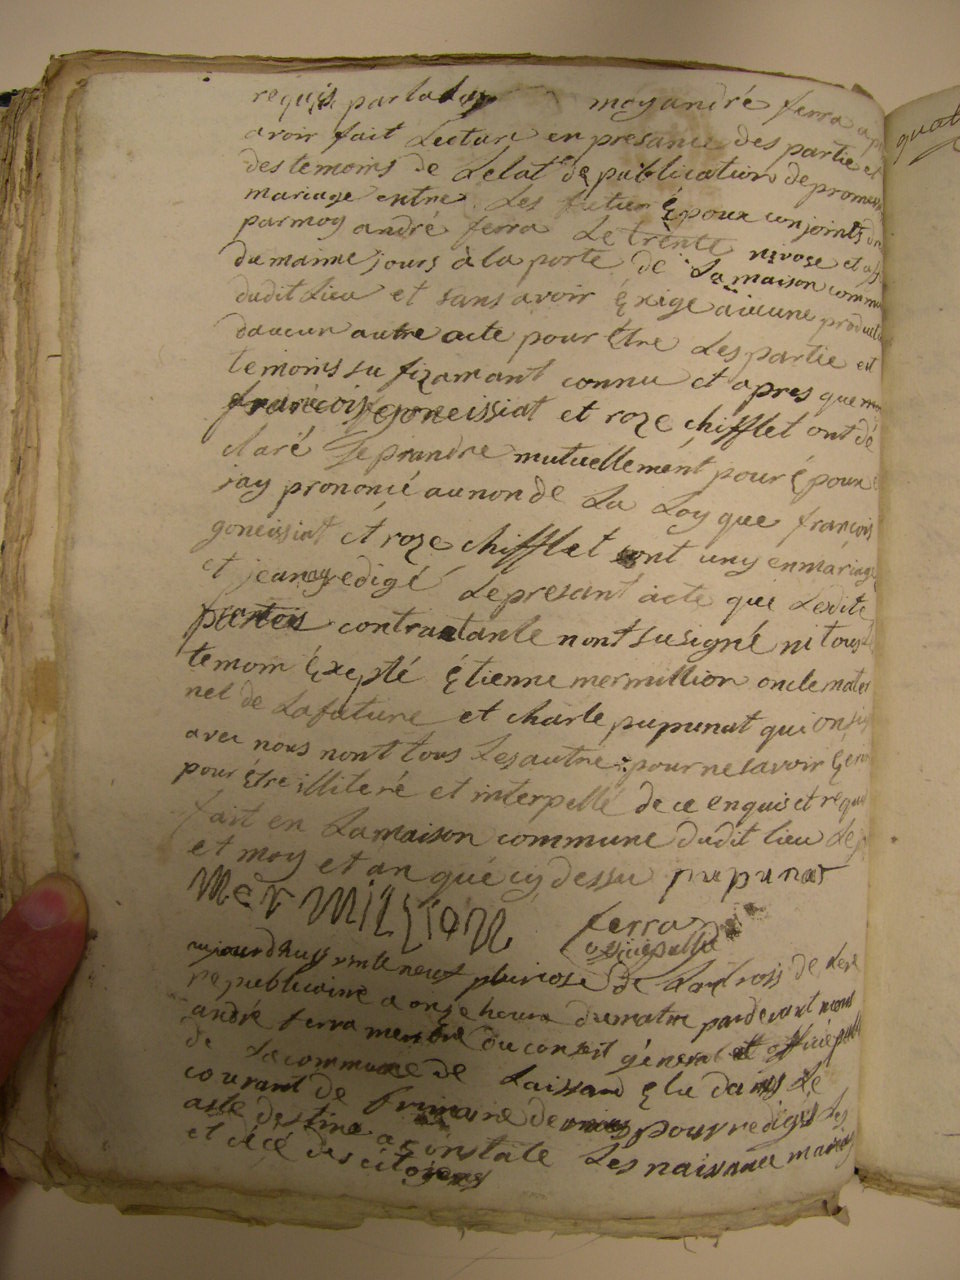 requis par la loy moy andré ferra ap
avoir fait Lecture en presance des partie et
des temoins de Lelat de publication de promes
mariage entre Les futur époux conjoints dre
par moy andré ferra Le trente nivose et aff
du manme jours à la porte de La maison commu
dudit Lieu et sans avoir éxigé aucune product
daucun autre acte pour être Les partie et
temoins sufizamant connu et apres que
françois goneissiat et roze chifflet ont dé
claré Se prandre mutuellement pour époux
jay prononcé au non de La Loy que françois
goneissiat et roze chifflet sont uny en mariage
et jean redigé Le presant acte que Lesdite
parties contractante nont susigné ni tous
temoin éxepté étienne mermillion oncle mater
nel de La future et charle pupunat qui on sig
avec nous nont tous Les autre pour ne savoir écri
pour être illiteré et interpellé de ce enquis et requi
fait en La maison commune dudit lieu Le j
et moy et an que cy dessu pupunat
mermillion ferra
officié public
aujourdhuy vinte neuf pluviose de Lan trois de Lere
republicaine a onze heure du matin pardevant nous
andré ferra membre du conseil général et officié publi
de La commune de Laissard élu dans Le
courant de frimaire dernier pour redigér Les
acte destine a constate Les naissance mariag
et décé des citoyens
quat